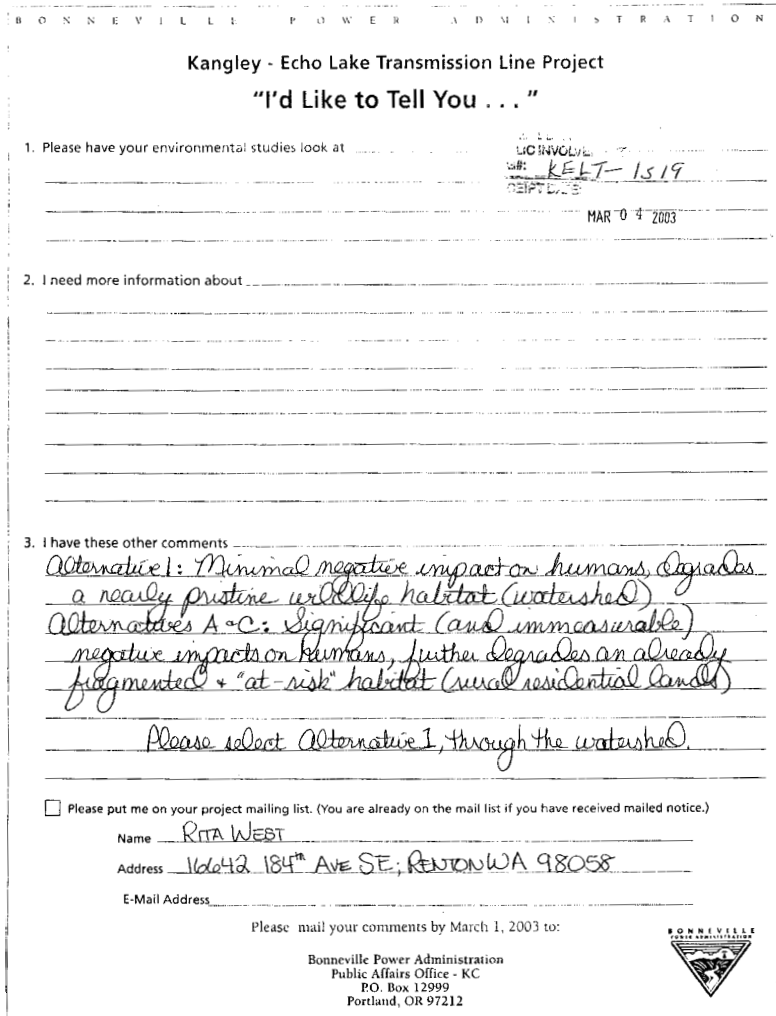 BONNEVILLE POWER ADMINISTRATION
Kangley - Echo Lake Transmission Line Project
"I'd Like to Tell You . . . "
1. Please have your environmental studies look at
LIC INVOLVE
KELT-1519
CEIPT DATE
MAR 0 4 2003
2. I need more information about
3. I have these other comments
Alternative 1: Minimal negative impact on humans, degrades
a nearly pristine wildlife habitat (watershed)
Alternatives A-C: Significant (and immeasurable)
negative impacts on humans, further degrades an already
fragmented + "at-risk" habitat (rural residential lands)
Please select Alternative 1, through the watershed.
Please put me on your project mailing list. (You are already on the mail list if you have received mailed notice.)
Name RITA WEST
Address 16642 184th AVE SE; RENTON WA 98058
E-Mail Address
Please mail your comments by March 1, 2003 to:
Bonneville Power Administration
Public Affairs Office - KC
P.O. Box 12999
Portland, OR 97212
BONNEVILLE
POWER ADMINISTRATION